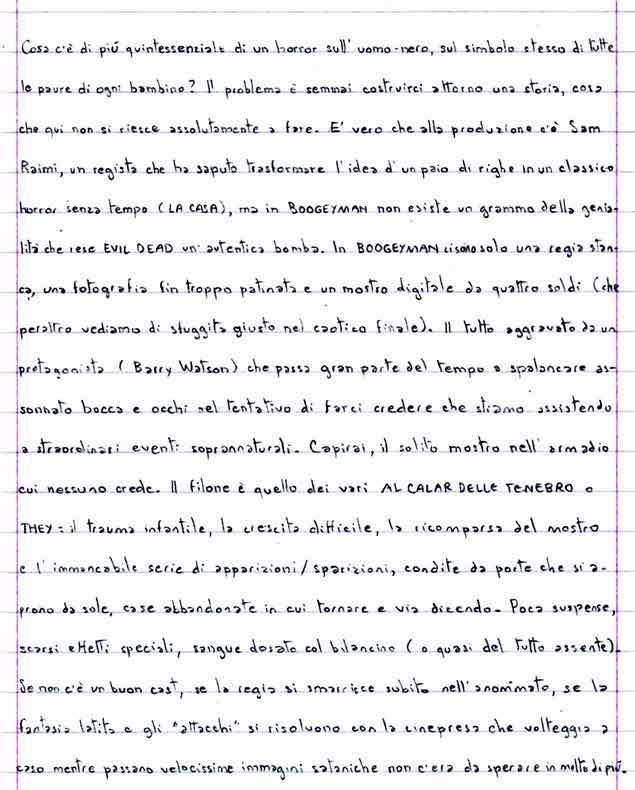 Cosa c'è di più quintessenziale di un horror sull'uomo-nero, sul simbolo stesso di tutte
le paure di ogni bambino? Il problema è semmai costruirci attorno una storia, cosa
che qui non si riesce assolutamente a fare. E' vero che alla produzione c'è Sam
Raimi, un regista che ha saputo trasformare l'idea d'un paio di righe in un classico
horror senza tempo (LA CASA), ma in BOOGEYMAN non esiste un grammo della genia-
lità che rese EVIL DEAD un'autentica bomba. In BOOGEYMAN ci sono solo una regia stan-
ca, una fotografia fin troppo patinata e un mostro digitale da quattro soldi (che
peraltro vediamo di sfuggita giusto nel caotico finale). Il tutto aggravato da un
protagonista (Barry Watson) che passa gran parte del tempo a spalancare as-
sonnato bocca e occhi nel tentativo di farci credere che stiamo assistendo
a straordinari eventi soprannaturali. Capirai, il solito mostro nell'armadio
cui nessuno crede. Il filone è quello dei vari AL CALAR DELLE TENEBRO o
THEY: il trauma infantile, la crescita difficile, la ricomparsa del mostro
e l'immancabile serie di apparizioni/sparizioni, condite da porte che si a-
prono da sole, case abbandonate in cui tornare e via dicendo. Poca suspense,
scarsi effetti speciali, sangue dosato col bilancino (o quasi del tutto assente).
Se non c'è un buon cast, se la regia si smarrisce subito nell'anonimato, se la
fantasia latita e gli "attacchi" si risolvono con la cinepresa che volteggia a
caso mentre passano velocissime immagini sataniche non c'era da sperare in molto di più.